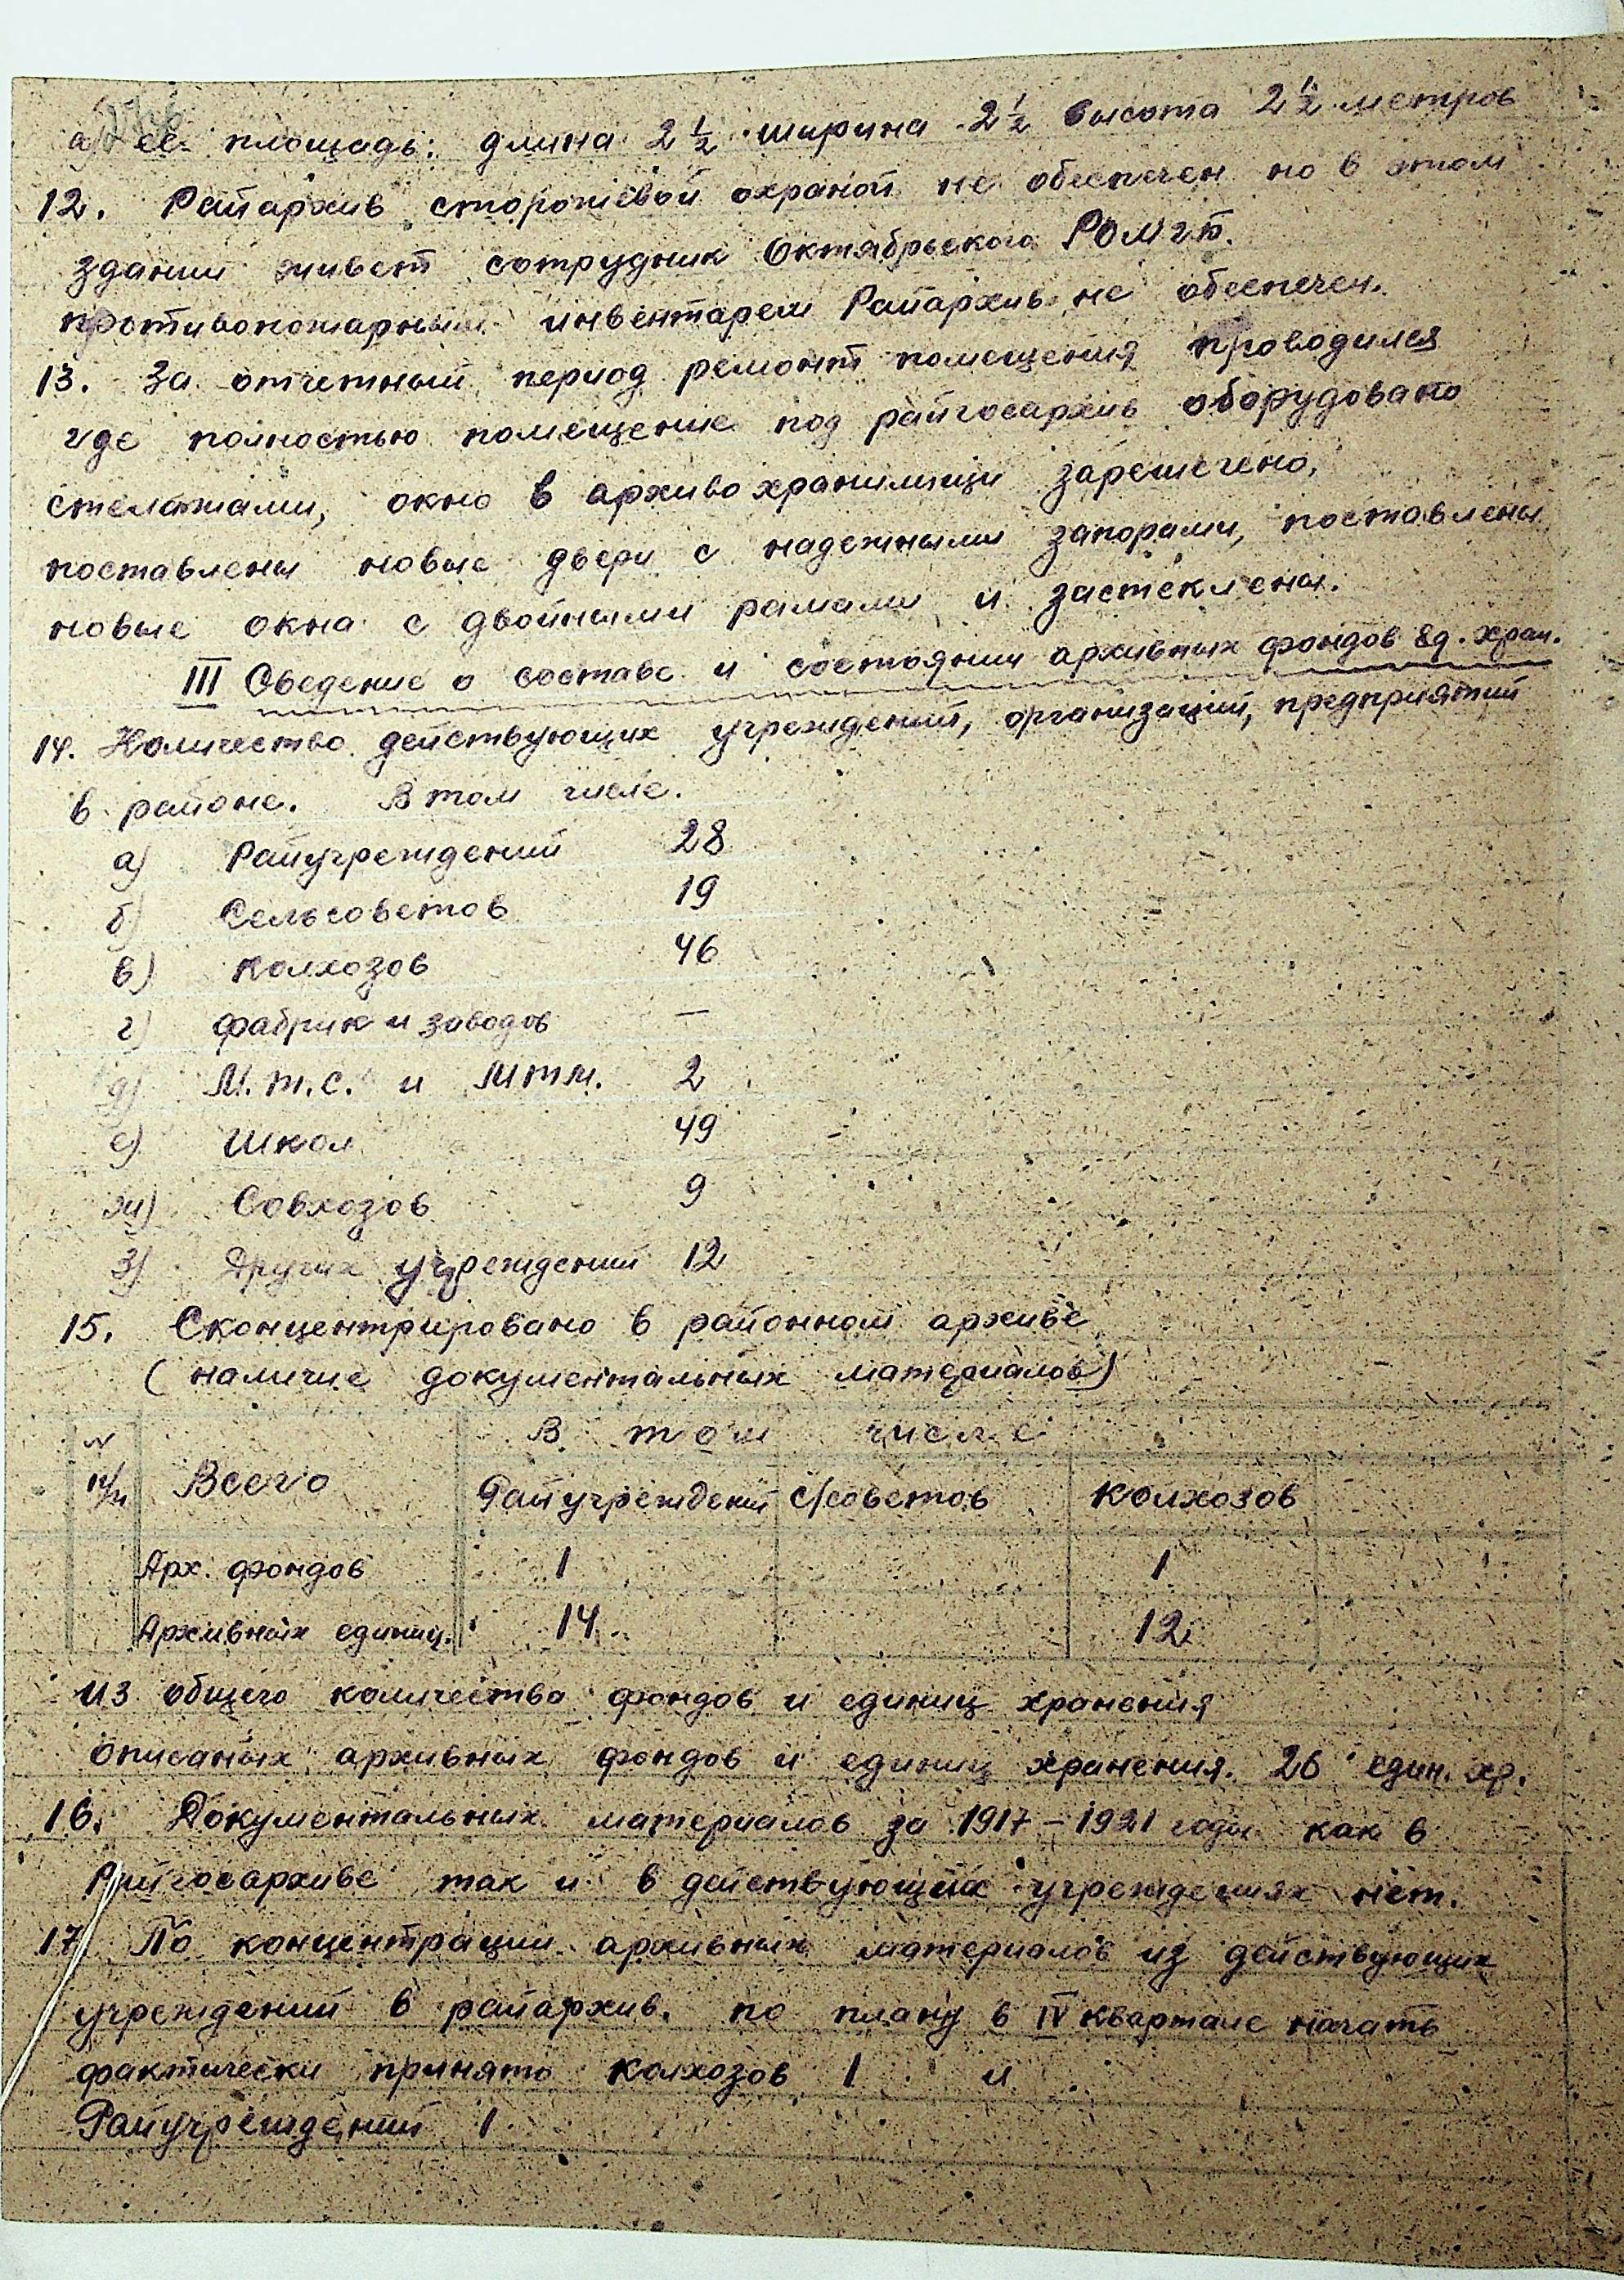 а) ее площадь: длина 2 1/2 ширина 2 1/2 высота 2 1/2 метров
12. Райархив сторожевой охраной не обеспечен но в этом
здании живет сотрудник Октябрьского РОМГБ.
противопожарным инвентарем Райархив не обеспечен.
13. За отчетный период ремонт помещения проводился
где полностью помещение под райгосархив оборудовано
стелажами, окно в архивохранилищи зарешечено,
поставлены новые двери с надежными запорами, поставлены
новые окна с двойными рамами и застеклены.
III Сведение о составе и состоянии архивных фондов ед. хран.
14. Количество действующих учреждений, организаций, предприятий
в районе. В том числе.
а) Райучреждений 28
б) Сельсоветов 19
в) Колхозов 46
г) фабрик и заводов —
д) М.т.с. и МТМ. 2
е) Школ 49
ж) Совхозов 9
з) Других учреждений 12
15. Сконцентрировано в районном архиве
(наличие документальных материалов)
N В том числе
п/п Всего Райучреждений с/советов Колхозов
Арх. фондов 1 1
Архивных единиц. 14 12
из общего количества фондов и единиц хранения
описаных архивных фондов и единиц хранения. 26 един. хр.
16. Документальных материалов за 1917 – 1921 годы как в
Райгосархиве так и в действующих учреждениях нет.
17. По концентрации архивных материалов из действующих
учреждений в райархив. по плану в IV квартале начать
фактически принято колхозов 1 и
Райучреждений 1.